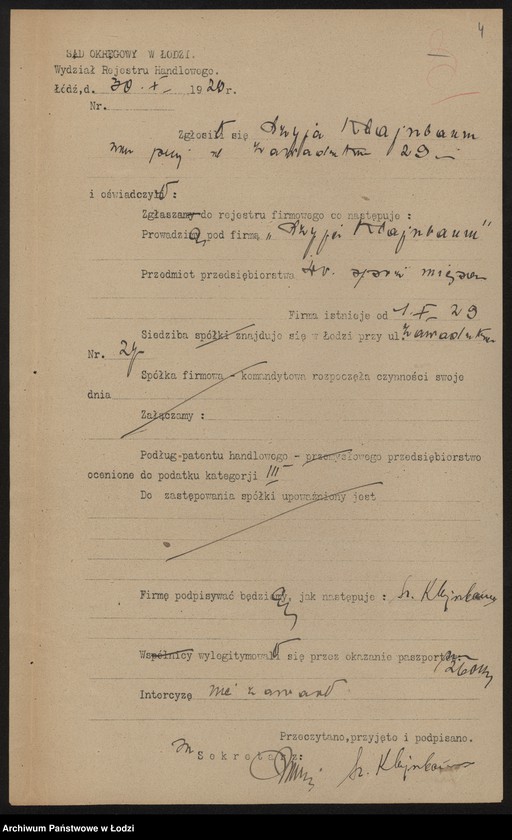 4
SĄD OKRĘGOWY W ŁODZI.
Wydział Rejestru Handlowego.
Łódź, d. 30. X 1920 r.
Nr.
Zgłosił się Szyja Klajnbaum
29
i oświadczył :
Zgłaszamy do rejestru firmowego co następuje :
Prowadzimy pod firmą „Szyja Klajnbaum"
Przedmiot przedsiębiorstwa
Firma istnieje od 1. I 29
Siedziba spółki znajduje się w Łodzi przy ul.
Nr. 29
Spółka firmowa - komandytowa rozpoczęła czynności swoje
dnia
Załączamy :
Podług patentu handlowego - przemysłowego przedsiębiorstwo
ocenione do podatku kategorji III
Do zastępowania spółki upoważniony jest
Firmę podpisywać będziemy, jak następuje : Sz. Klejnbaum
Wspólnicy wylegitymowali się przez okazanie paszportów
Intercyzę nie zawarł
Przeczytano, przyjęto i podpisano.
Sekretarz:
Sz. Klejnbaum
Archiwum Państwowe w Łodzi